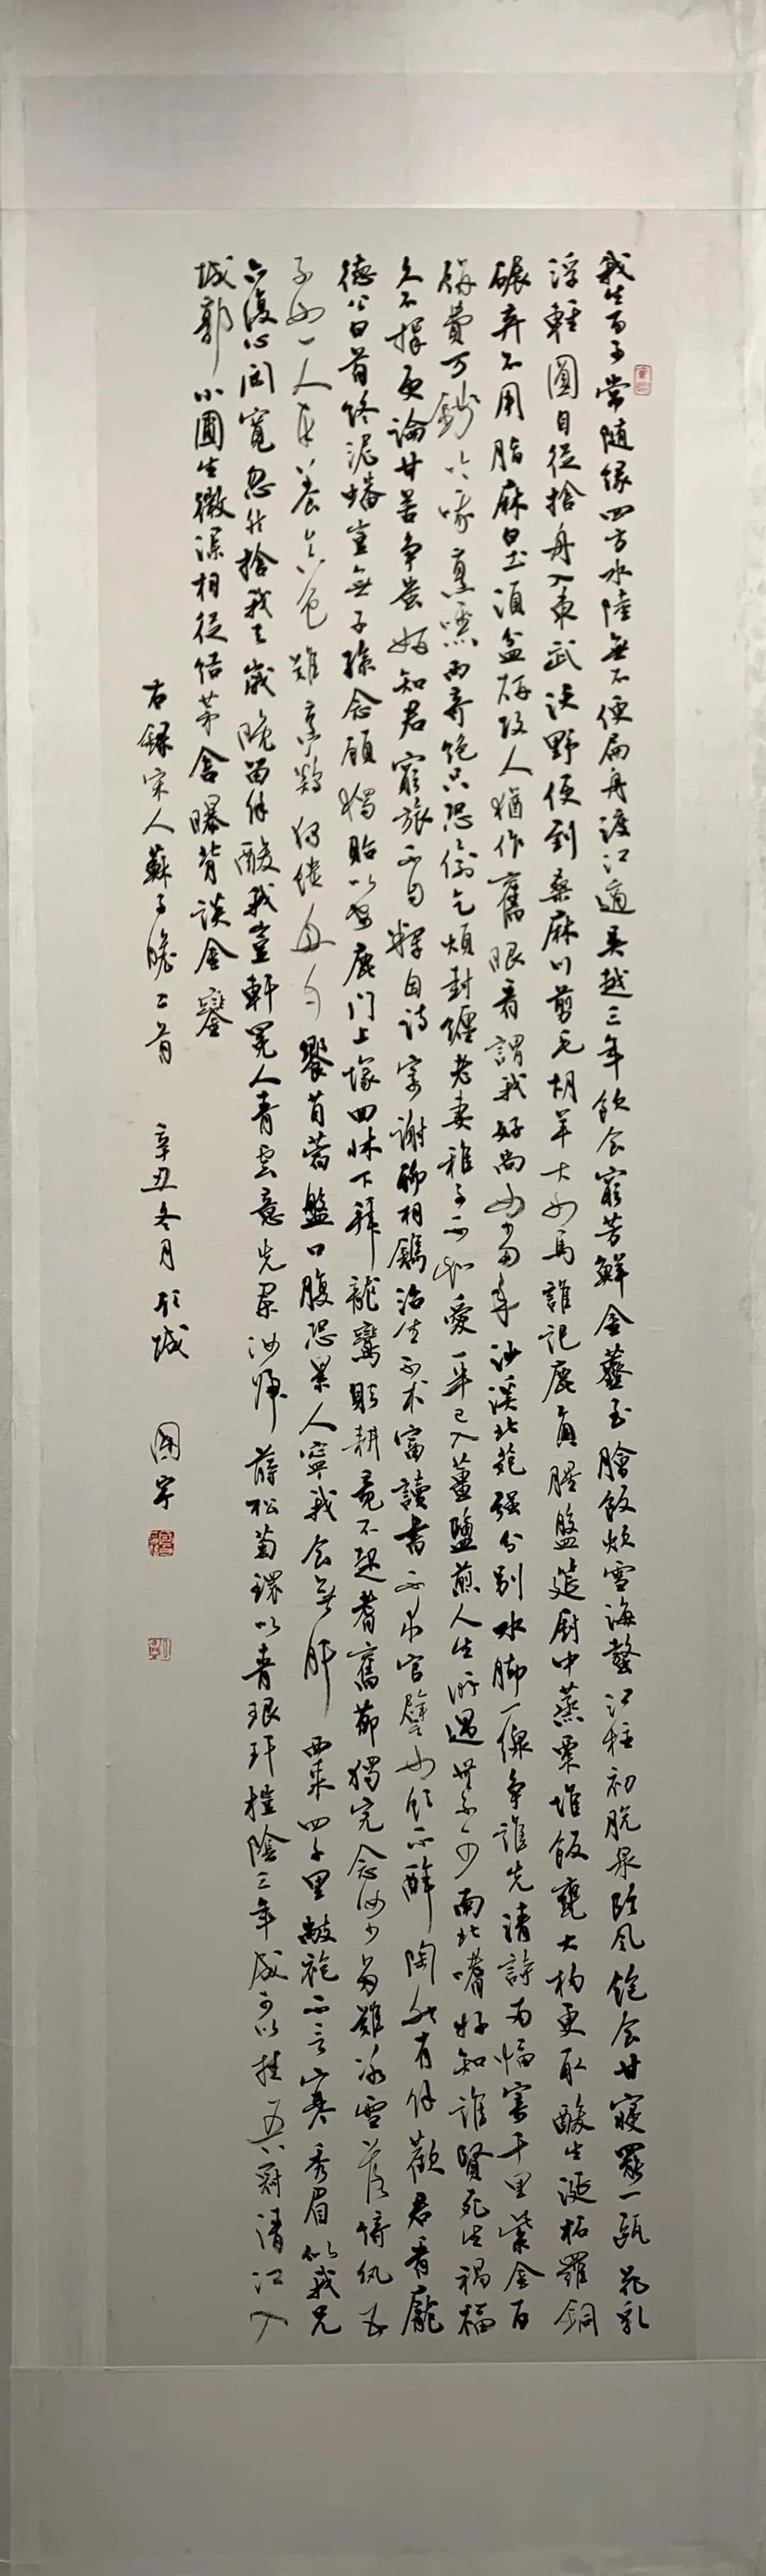 我生百事常隨緣四方水陸無不便扁舟渡江適吳越三年飲食窮芳鮮金虀玉膾飯炊雪海螯江柱初脫泉臨風飽食甘寢罷一甌花乳
浮輕圓自從捨舟入東武沃野便到桑麻川剪毛胡羊大如馬誰記鹿角腥盤筵廚中蒸粟堆飯甕大杓更取酸生涎柘羅銅
碾棄不用脂麻白土須盆研故人猶作舊眼看謂我好尚如當年沙溪北苑強分別水腳一線爭誰先清詩兩幅寄千里紫金百
餅費萬錢吟哦烹噍兩奇絕只恐偷乞煩封纏老妻稚子不知愛一半已入薑鹽煎人生所遇無不可南北嗜好知誰賢死生禍福
久不擇更論甘苦爭蚩妍知君窮旅不自釋因詩寄謝聊相鐫治生不求富讀書不求官譬如飲不醉陶然有餘歡君看龐
德公白首終泥蟠豈無子孫念顧獨貽以安鹿門上塚回牀下拜龍鸞躬耕竟不起耆舊節獨完念汝少多難冰雪落綺紈五
子如一人奉養真色難烹雞獨饋母自饗苜蓿盤口腹恐累人寧我食無肝西來四千里敝袍不言寒秀眉似我兄
亦復心閑寬忽然捨我去歲晚留餘酸我豈軒冕人青雲意先闌汝歸蒔松菊環以青琅玕榿陰三年成可以挂吾冠清江入
城郭小圃生微瀾相從結茅舍曝背談金鑾
右錄宋人蘇子瞻二首 辛丑冬月於城 國宇